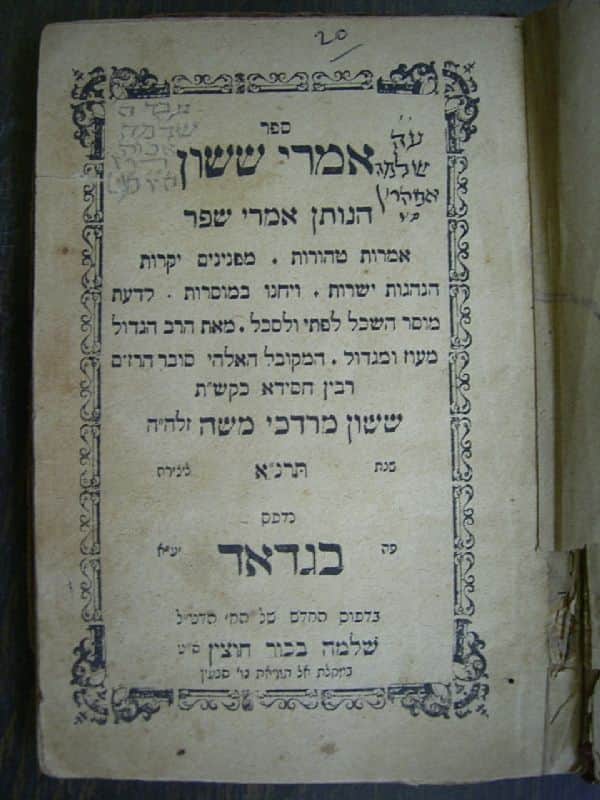 20
ספר
אמרי ששון
ע״ה
שלמה
הנותן אמרי שפר
אמרות טהורות . מפנינים יקרות
הנהגות ישרות . ויהגו במוסרות . לדעת
מוסר השכל לפתי ולסכל . מאת הרב הגדול
מעוז ומגדול . המקובל האלהי סובר הרזים
רבין חסידא בקש״ת
ששון מרדכי משה זלה״ה
שנת תרנ״א ליצירה
נדפס
פה בגדאד יע״א
בדפוס החדש של
שלמה בכור חוצין ס״ט